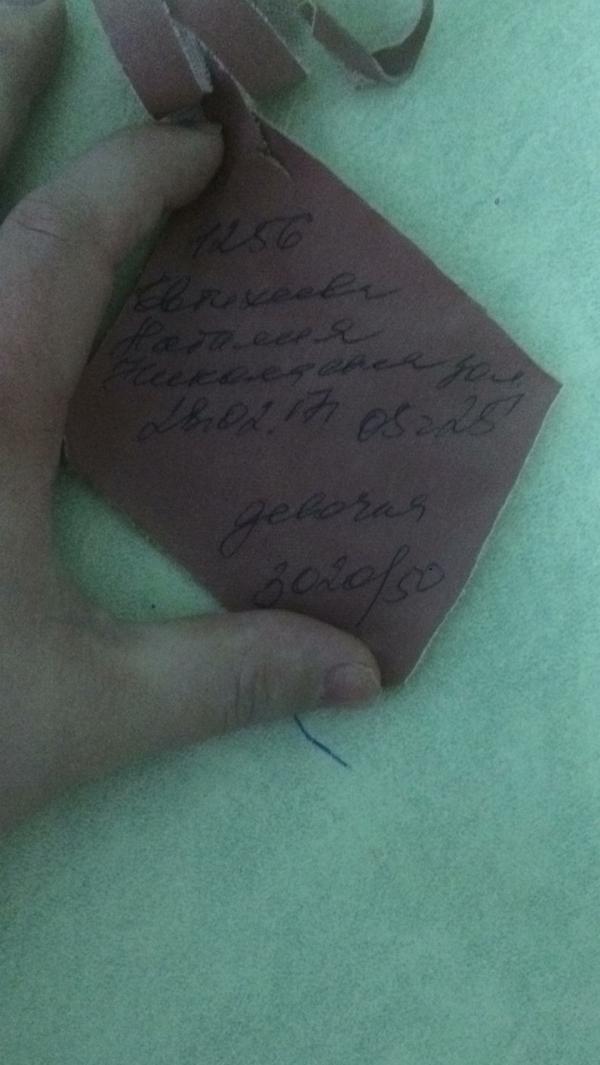 1256
Евтихеева
Наталия
Николаевна
28.02.17 05 25
девочка
3020/50